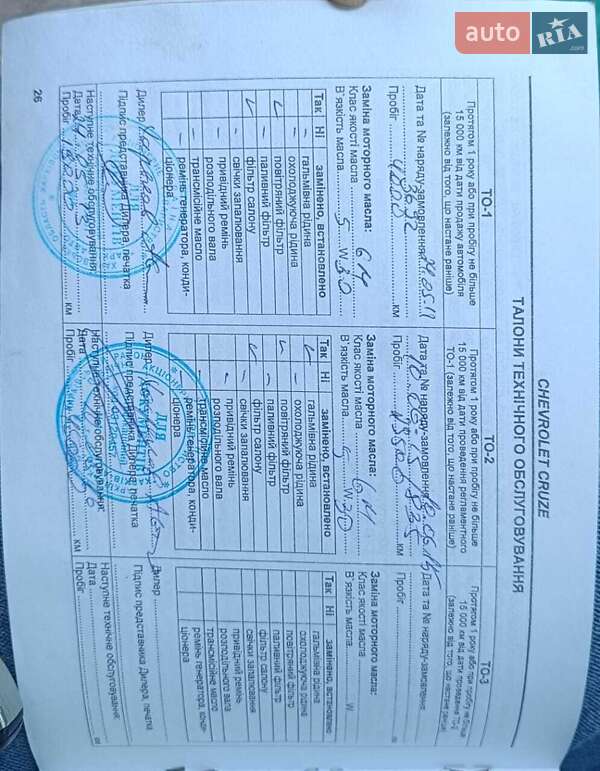 auto RIA.com
CHEVROLET CRUZE
ТАЛОНИ ТЕХНІЧНОГО ОБСЛУГОВУВАННЯ
ТО-1
Протягом 1 року або при пробігу не більше
15 000 км від дати продажу автомобіля
(залежно від того, що настане раніше)
Дата та № наряду-замовлення
Пробіг км
Заміна моторного масла:
Клас якості масла
В'язкість масла 5 W 30
Так Ні замінено, встановлено
гальмівна рідина
охолоджуюча рідина
повітряний фільтр
паливний фільтр
фільтр салону
свічки запалювання
привідний ремінь
розподільного вала
трансмісійне масло
ремінь генератора, конди-
ціонера
Дилер
Підпис представника Дилера, печатка
Наступне технічне обслуговування
Дата
Пробіг км
26
ТО-2
Протягом 1 року або при пробігу не більше
15 000 км від дати проведення регламентного
ТО-1 (залежно від того, що настане раніше)
Дата та № наряду-замовлення
Пробіг км
Заміна моторного масла:
Клас якості масла
В'язкість масла 5 W 30
Так Ні замінено, встановлено
гальмівна рідина
охолоджуюча рідина
повітряний фільтр
паливний фільтр
фільтр салону
свічки запалювання
привідний ремінь
розподільного вала
трансмісійне масло
ремінь генератора, конди-
ціонера
Дилер
Підпис представника Дилера, печатка
Наступне технічне обслуговування:
Дата
Пробіг км
ДЛЯ
ДОКУМЕНТІВ
ТО-3
Протягом 1 року або при пробігу не більше
15 000 км від дати проведення ТО-2
(залежно від того, що настане раніше)
Дата та № наряду-замовлення
Пробіг км
Заміна моторного масла:
Клас якості масла
В'язкість масла W
Так Ні замінено, встановлено
гальмівна рідина
охолоджуюча рідина
повітряний фільтр
паливний фільтр
фільтр салону
свічки запалювання
привідний ремінь
розподільного вала
трансмісійне масло
ремінь генератора, конди-
ціонера
Дилер
Підпис представника Дилера, печатка
Наступне технічне обслуговування:
Дата
Пробіг км